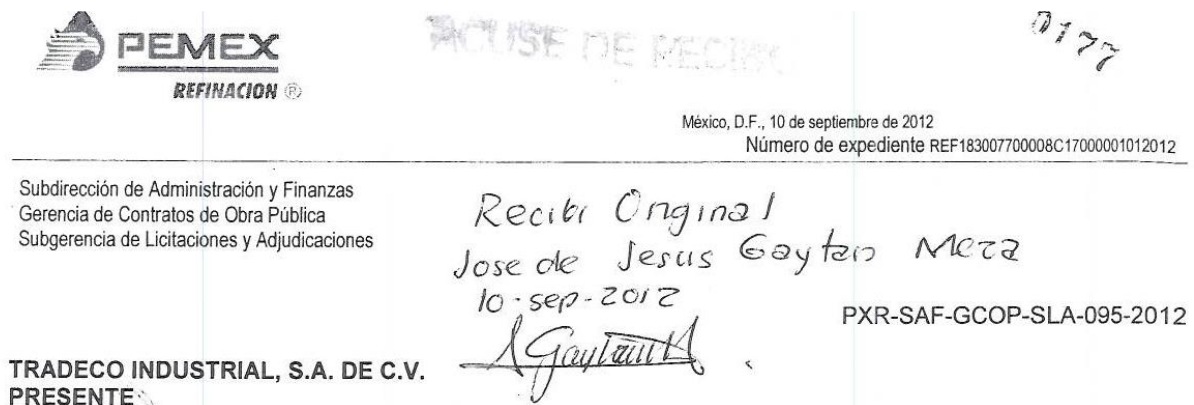 PEMEX
REFINACION ®
ACUSE DE RECIBO
0177
México, D.F., 10 de septiembre de 2012
Número de expediente REF183007700008C17000001012012
Subdirección de Administración y Finanzas
Gerencia de Contratos de Obra Pública
Subgerencia de Licitaciones y Adjudicaciones
Recibi Original
Jose de Jesus Gaytan Meza
10-sep-2012
PXR-SAF-GCOP-SLA-095-2012
TRADECO INDUSTRIAL, S.A. DE C.V.
PRESENTE